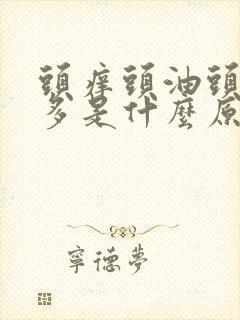 頭癢頭油頭
多是什麼原
寧德夢